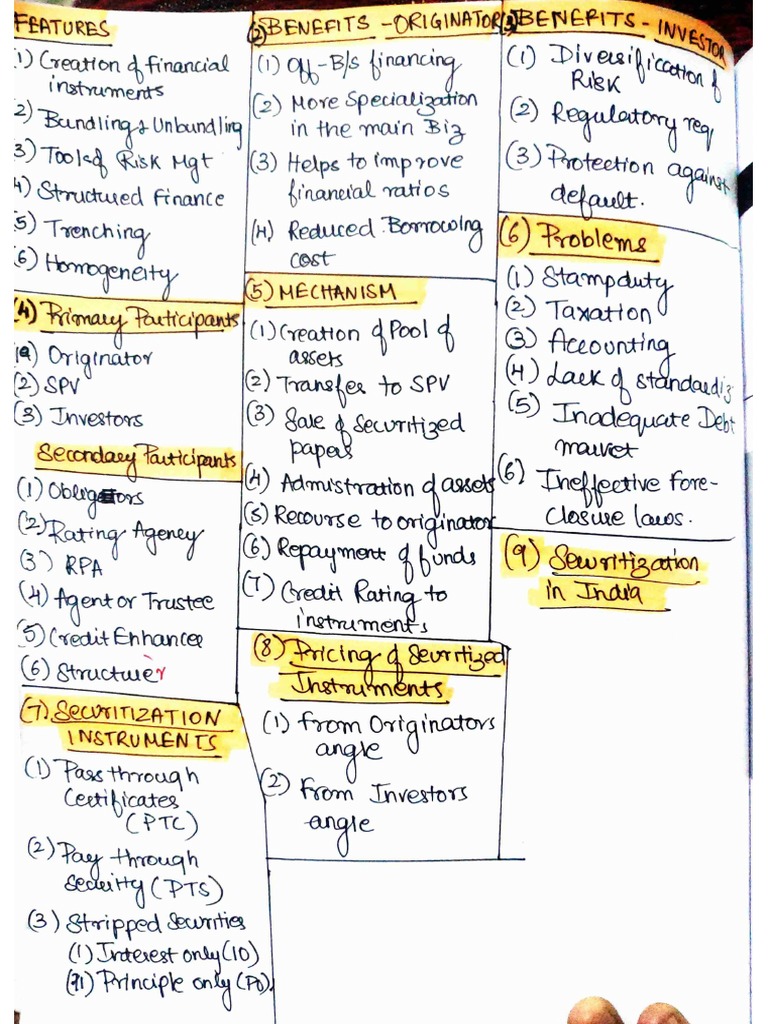 FEATURES
1) Creation of financial
instruments
2) Bundling & Unbundling
3) Tools of Risk Mgt
4) Structured Finance
5) Trenching
6) Homogeneity
(2) BENEFITS - ORIGINATOR
(1) Off-B/s financing
(2) More Specialization
in the main Biz
(3) Helps to improve
financial ratios
(4) Reduced Borrowing
cost
(3) BENEFITS - INVESTOR
(1) Diversification of
Risk
(2) Regulatory req
(3) Protection against
default.
(4) Primary Participants
(1) Originator
(2) SPV
(3) Investors
Secondary Participants
(1) Obligators
(2) Rating Agency
(3) RPA
(4) Agent or Trustee
(5) Credit Enhancer
(6) Structurer
(5) MECHANISM
(1) Creation of Pool of
assets
(2) Transfer to SPV
(3) Sale of Securitized
papers
(4) Admistration of assets
(5) Recourse to originator
(6) Repayment of funds
(7) Credit Rating to
instruments
(6) Problems
(1) Stamp duty
(2) Taxation
(3) Accounting
(4) Lack of standardiz
(5) Inadequate Debt
market
(6) Ineffective fore-
closure laws.
(7) SECURITIZATION
INSTRUMENTS
(1) Pass through
Certificates
(PTC)
(2) Pay through
Security (PTS)
(3) Stripped Securities
(1) Interest only (IO)
Principle only (PO)
(8) Pricing of Securitized
Instruments
(1) From Originators
angle
(2) From Investors
angle
(9) Securitization
in India